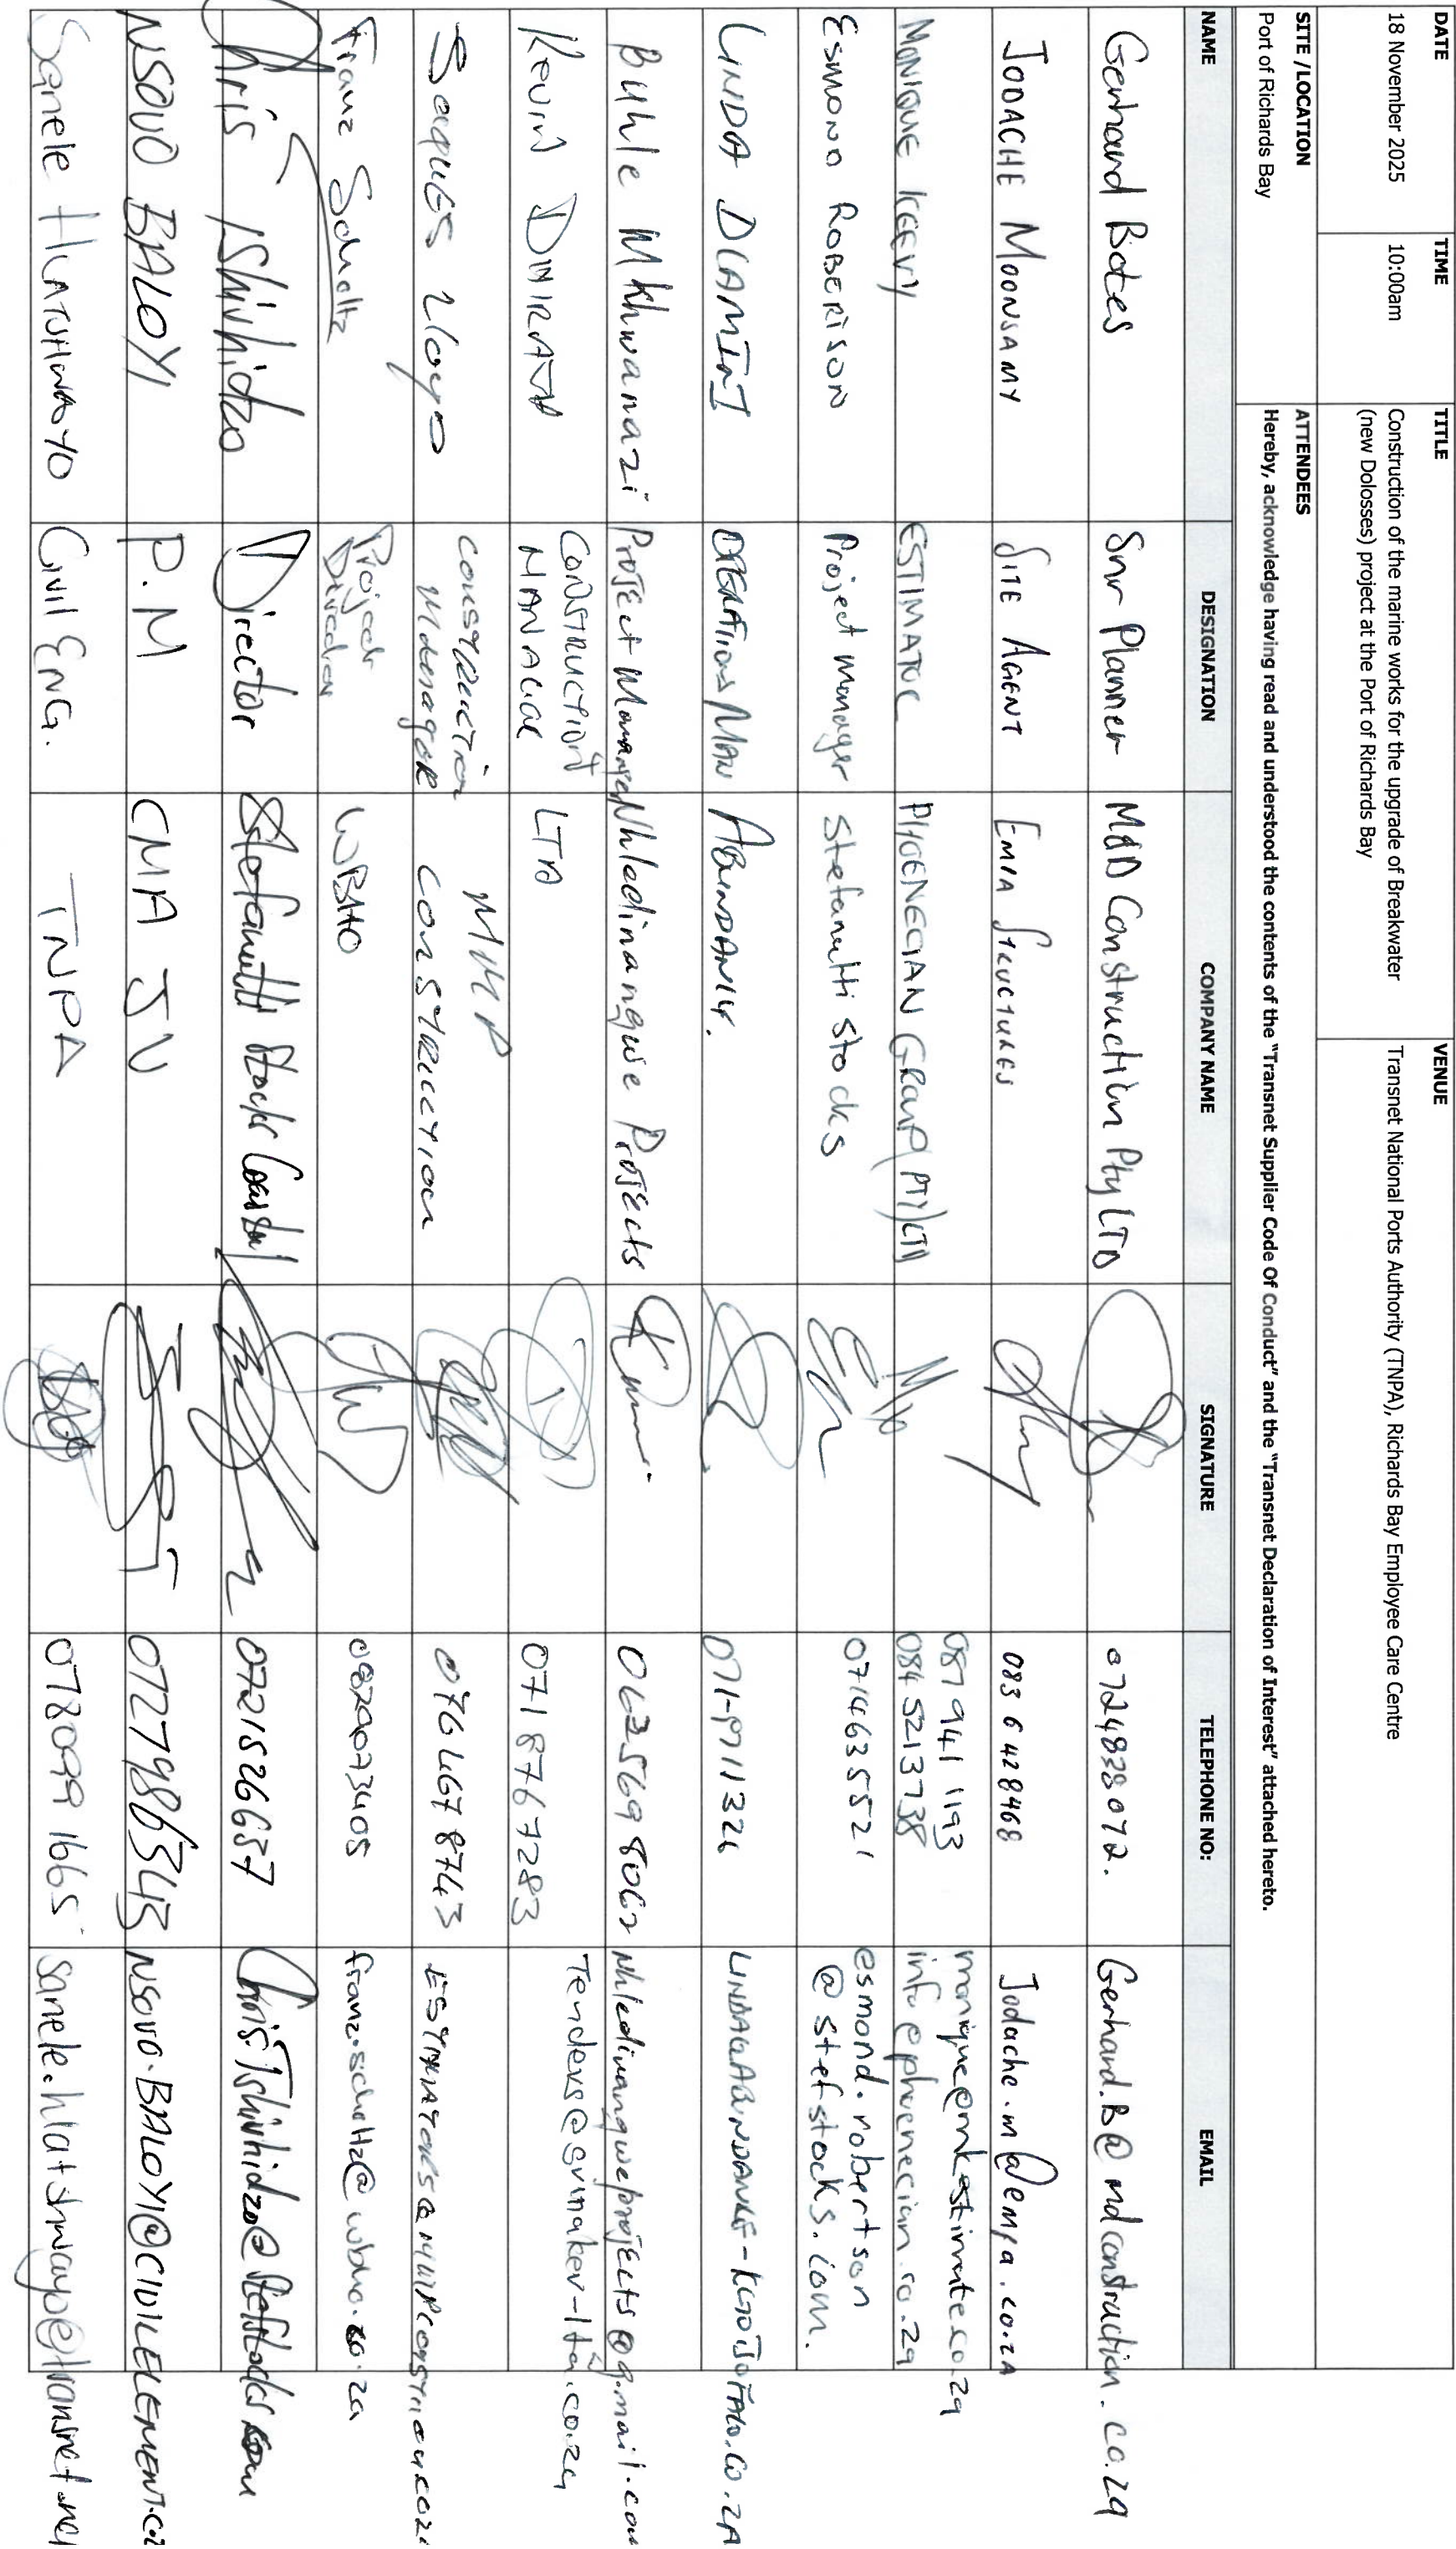 DATE TIME TITLE VENUE
18 November 2025 10:00am Construction of the marine works for the upgrade of Breakwater Transnet National Ports Authority (TNPA), Richards Bay Employee Care Centre
(new Dolosses) project at the Port of Richards Bay
SITE /LOCATION ATTENDEES
Port of Richards Bay Hereby, acknowledge having read and understood the contents of the "Transnet Supplier Code Of Conduct" and the "Transnet Declaration of Interest" attached hereto.
NAME DESIGNATION COMPANY NAME SIGNATURE TELEPHONE NO: EMAIL
Gerhard Botes Snr Planner M&D Construction Pty LTD 0724828072. Gerhard.B@mdconstruction.co.za
JODACHE MOONSAMY SITE AGENT EMYA STRUCTURES 083 6428468 Jodache.m@emya.co.za
MONIQUE KEEVY ESTIMATOR PHOENECIAN GROUP (PTY) LTD 087 941 1193 monique@mkestimate.co.za
084 5213738 info@phoenecian.co.za
Esmond Robertson Project manager Stefanutti Stocks 0714635521 esmond.robertson
@stefstocks.com.
LINDA DLAMINI OPERATIONS MAN 071-9711326
Buhle Mkhwanazi Project Manager Nhledinangwe Projects 063 569 8062 Nhledinangweprojects@gmail.com
Kevin CONSTRUCTION
MANAGER LTA 071 876 7283 Tenders@grinaker-lta.co.za
CONSTRUCTION MMP
Manager CONSTRUCTION 076 467 8743
Franz Scheltz Project
Director WBHO 0829073405 franz.scheltz@wbho.co.za
Chris Tshivhidzo Director Stefanutti Stocks Coastal 0721526637 Chris.Tshivhidzo@stefstocks.com
NSOVO BALOYI P.M CMA JV 0727986345 NSOVO.BALOYI@CIVILELEMENT.CO
Sanele HLATSHWAYO Civil ENG. TNPA 078099 1665 sanele.hlatshwayo@transnet.net